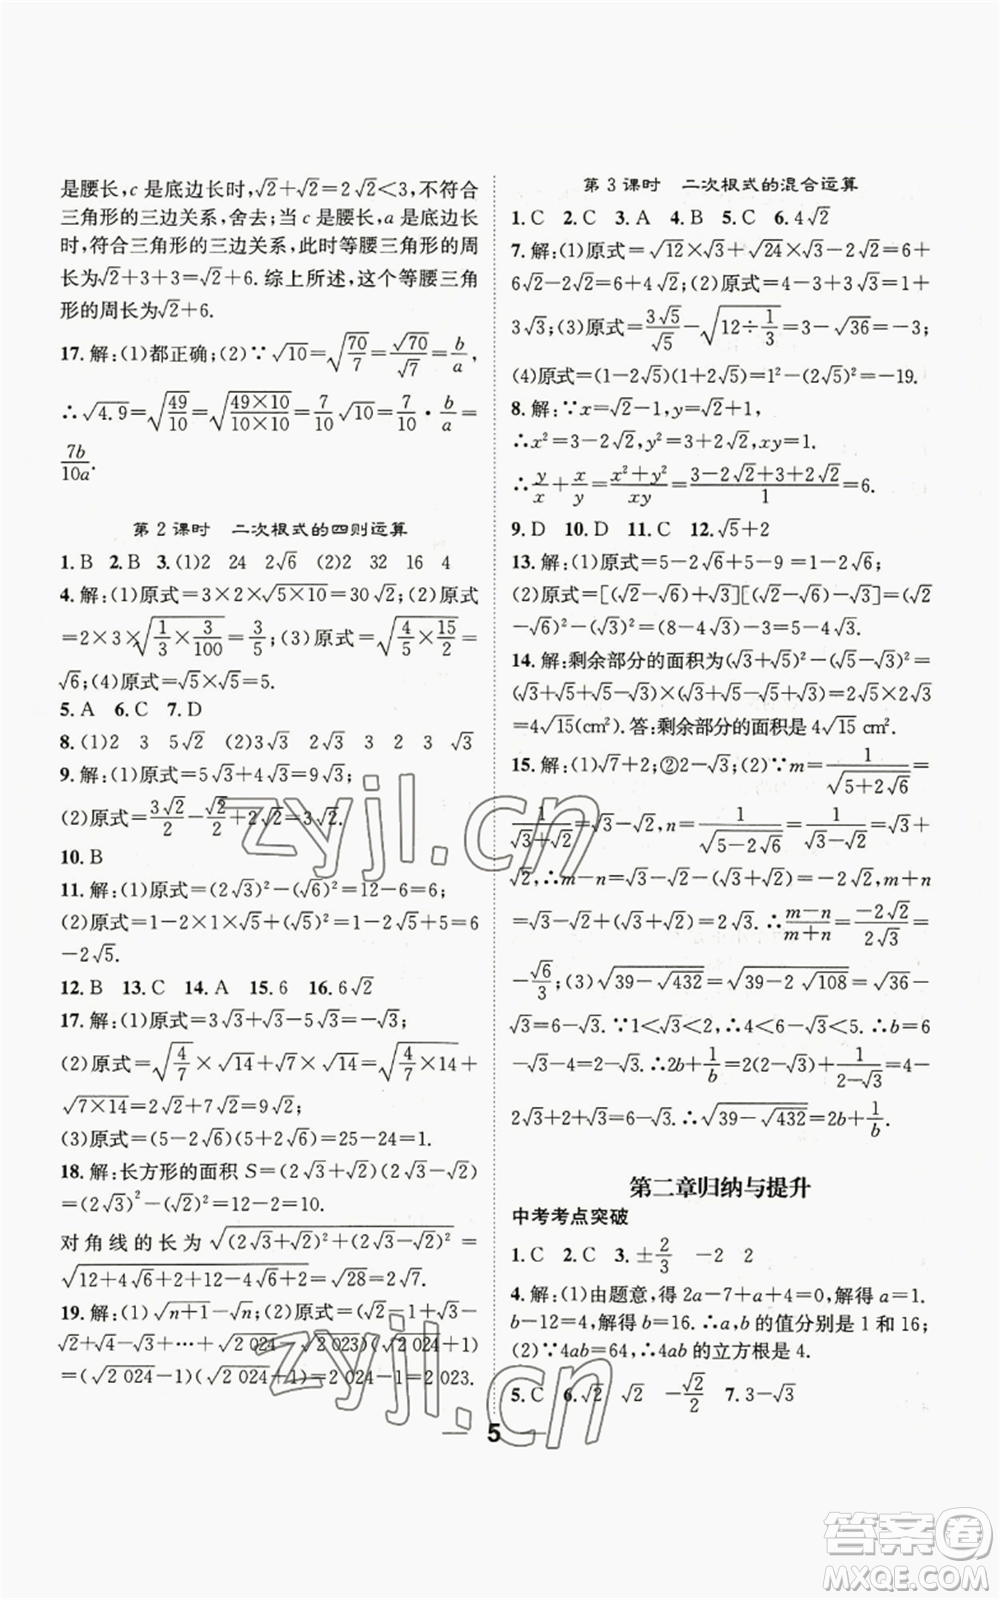 是腰长,c是底边长时,√2+√2=2√2<3,不符合
三角形的三边关系,舍去;当c是腰长,a是底边长
时,符合三角形的三边关系,此时等腰三角形的周
长为√2+3+3=√2+6. 综上所述,这个等腰三角
形的周长为√2+6.
17. 解:(1)都正确;(2)∵√10=√(70/7)=√70/√7=b/a,
∴√4.9=√(49/10)=√((49×10)/(10×10))=7/10√10=7/10·b/a=
7b/10a.
第2课时 二次根式的四则运算
1. B 2. B 3. (1)2 24 2√6 (2)2 32 16 4
4. 解:(1)原式=3×2×√(5×10)=30√2;(2)原式
=2×3×√(1/3×3/100)=3/5;(3)原式=√(4/5×15/2)=
√6;(4)原式=√5×√5=5.
5. A 6. C 7. D
8. (1)2 3 5√2 (2)3√3 √3 3 2 √3
9. 解:(1)原式=5√3+4√3=9√3;
(2)原式=3√2/2-√2/2+2√2=3√2.
10. B
11. 解:(1)原式=(2√3)²-(√6)²=12-6=6;
(2)原式=1-2×1×√5+(√5)²=1-2√5+5=6
-2√5.
12. B 13. C 14. A 15. 6 16. 6√2
17. 解:(1)原式=3√3+√3-5√3=-√3;
(2)原式=√(4/7)×√14+√7×√14=√(4/7×14)+
√(7×14)=2√2+7√2=9√2;
(3)原式=(5-2√6)(5+2√6)=25-24=1.
18. 解:长方形的面积S=(2√3+√2)(2√3-√2)
=(2√3)²-(√2)²=12-2=10;
对角线的长为√((2√3+√2)²+(2√3-√2)²)=
√(12+4√6+2+12-4√6+2)=√28=2√7.
19. 解:(1)√(n+1)-√n;(2)原式=(√2-1+√3-
√2+√4-√3+…+√2 024-√2 023)(√2 024+1)=
(√2 024-1)(√2 024+1)=2 024-1=2 023.
第3课时 二次根式的混合运算
1. C 2. C 3. A 4. B 5. C 6. 4√2
7. 解:(1)原式=√12×√3+√24×√3-2√2=6+
6√2-2√2=6+4√2;(2)原式=4-3+3√3=1+
3√3;(3)原式=3√5/√5-√(12÷1/3)=3-√36=-3;
(4)原式=(1-2√5)(1+2√5)=1²-(2√5)²=-19.
8. 解:∵x=√2-1,y=√2+1,
∴x²=3-2√2,y²=3+2√2,xy=1.
∴y/x+x/y=(x²+y²)/xy=(3-2√2+3+2√2)/1=6.
9. D 10. D 11. C 12. √5+2
13. 解:(1)原式=5-2√6+5-9=1-2√6;
(2)原式=[(√2-√6)+√3][(√2-√6)-√3]=(√2
-√6)²-(√3)²=(8-4√3)-3=5-4√3.
14. 解:剩余部分的面积为(√3+√5)²-(√5-√3)²=
(√3+√5+√5-√3)(√3+√5-√5+√3)=2√5×2√3
=4√15(cm²). 答:剩余部分的面积是4√15 cm².
15. 解:(1)√7+2;②2-√3;(2)∵m=1/√(5+2√6)=
1/(√3+√2)=√3-√2,n=1/√(5-2√6)=1/(√3-√2)=√3+
√2,∴m-n=√3-√2-(√3+√2)=-2√2,m+n
=√3-√2+√3+√2=2√3.∴(m-n)/(m+n)=-2√2/2√3=
-√6/3;(3)√(39-√432)=√(39-2√108)=√(6-
√3)²=6-√3.∵1<√3<2,∴4<6-√3<5.∴b=6
-√3-4=2-√3.∴2b+1/b=2(2-√3)+1/(2-√3)=4-
2√3+2+√3=6-√3.∴√(39-√432)=2b+1/b.
第二章归纳与提升
中考考点突破
1. C 2. C 3. ±2/3 -2 2
4. 解:(1)由题意,得2a-7+a+4=0,解得a=1.
b-12=4,解得b=16.∴a,b的值分别是1和16;
(2)∵4ab=64,∴4ab的立方根是4.
5. C 6. √2 √2 -√2/2 7. 3-√3
5
zyjl.cn
zyjl.cn
答案卷
MXQE.COM